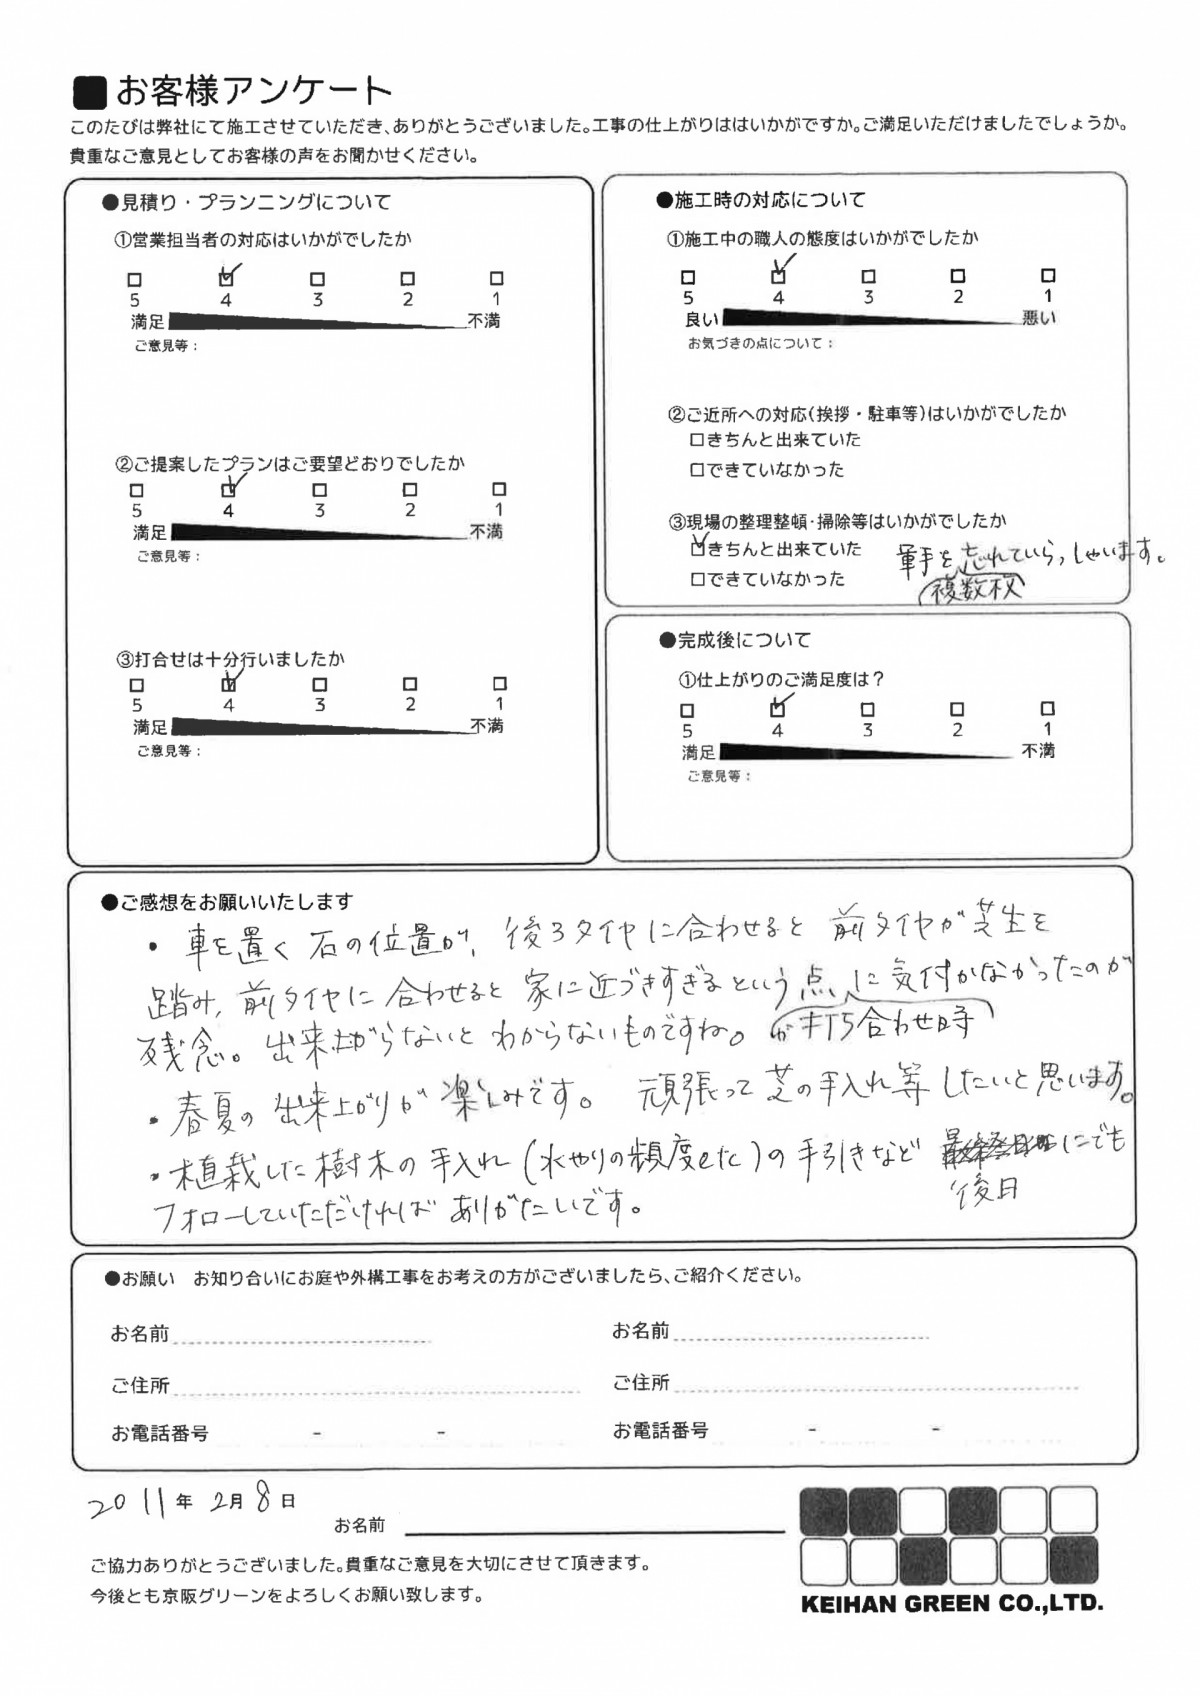 ■お客様アンケート
このたびは弊社にて施工させていただき、ありがとうございました。工事の仕上がりははいかがですか。ご満足いただけましたでしょうか。
貴重なご意見としてお客様の声をお聞かせください。
●見積り・プランニングについて
①営業担当者の対応はいかがでしたか
5 4 3 2 1
満足 不満
ご意見等：
②ご提案したプランはご要望どおりでしたか
5 4 3 2 1
満足 不満
ご意見等：
③打合せは十分行いましたか
5 4 3 2 1
満足 不満
ご意見等：
●施工時の対応について
①施工中の職人の態度はいかがでしたか
5 4 3 2 1
良い 悪い
お気づきの点について：
②ご近所への対応（挨拶・駐車等）はいかがでしたか
□きちんと出来ていた
□できていなかった
③現場の整理整頓・掃除等はいかがでしたか
□きちんと出来ていた
□できていなかった
軍手を忘れていらっしゃいます。
複数枚
●完成後について
①仕上がりのご満足度は？
5 4 3 2 1
満足 不満
ご意見等：
●ご感想をお願いいたします
・車を置く石の位置が、後ろタイヤに合わせると前タイヤが芝生を
踏み、前タイヤに合わせると家に近づきすぎるという点に気付かなかったのが
残念。出来上がらないとわからないものですね。 が打ち合わせ時
・春夏の出来上がりが楽しみです。頑張って芝の手入れ等したいと思います。
・植栽した樹木の手入れ（水やりの頻度etc）の手引きなど にでも
後日
フォローしていただければありがたいです。
●お願い お知り合いにお庭や外構工事をお考えの方がございましたら、ご紹介ください。
お名前 お名前
ご住所 ご住所
お電話番号 - - お電話番号 - -
2011年2月8日
お名前
ご協力ありがとうございました。貴重なご意見を大切にさせて頂きます。
今後とも京阪グリーンをよろしくお願い致します。
KEIHAN GREEN CO.,LTD.